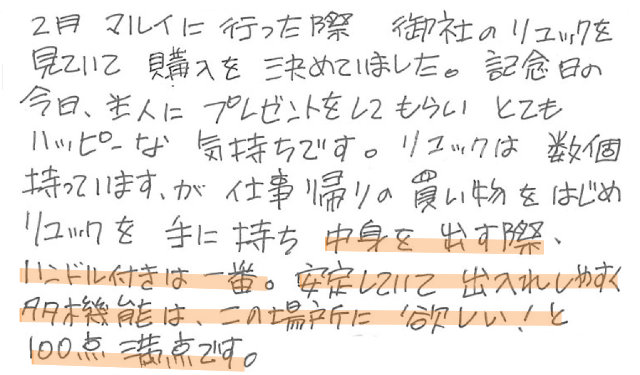 2月 マルイに 行った際 御社の リュックを
見ていて 購入を 決めていました。記念日の
今日、主人に プレゼントをして もらい とても
ハッピーな 気持ちです。リュックは 数個
持っています、が 仕事帰りの 買い物を はじめ
リュックを 手に 持ち 中身を 出す際、
ハンドル付きは 一番。安定していて 出入れしやすく
多機能は、この場所に 欲しい！と
100点 満点です。